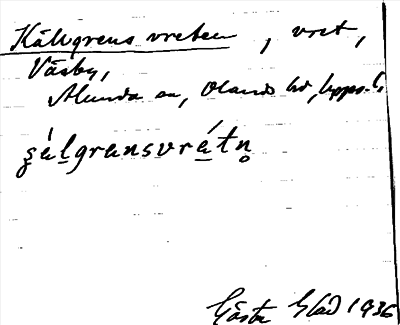 Källgrens vreten, vret,
Väsby,
Alunda sn, Olands hd, Upps. l.
şálgransvrátn̥
Gösta Glad 1936